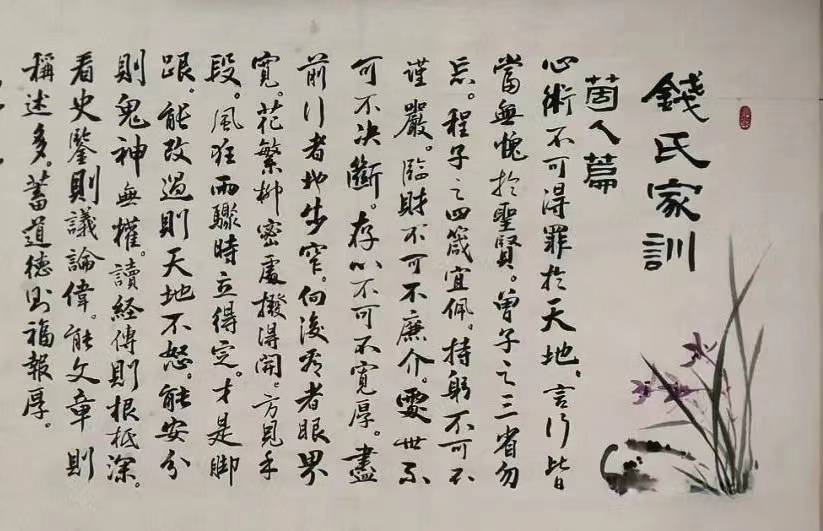 錢氏家訓
箇人篇
心術不可得罪於天地。言行皆
當無愧於聖賢。曾子之三省勿
忘。程子之四箴宜佩。持躬不可不
謹嚴。臨財不可不廉介。處世不
可不决斷。存心不可不寬厚。盡
前行者地步窄。向後看者眼界
寬。花繁柳密處撥得開。方見手
段。風狂雨驟時立得定。才是脚
跟。能改過則天地不怒。能安分
則鬼神無權。讀經傳則根柢深。
看史鑒則議論偉。能文章則
稱述多。蓄道德則福報厚。